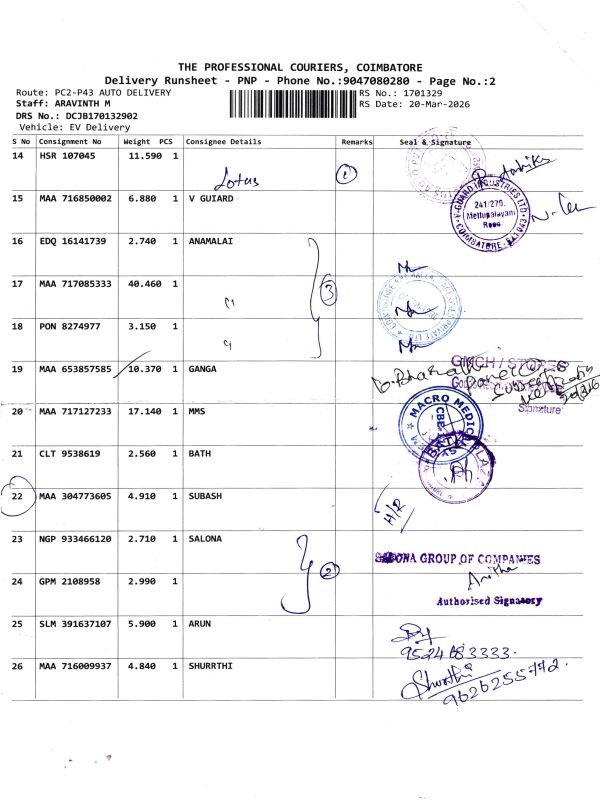 THE PROFESSIONAL COURIERS, COIMBATORE
Delivery Runsheet - PNP - Phone No.:9047080280 - Page No.:2
Route: PC2-P43 AUTO DELIVERY
RS No.: 1701329
Staff: ARAVINTH M
RS Date: 20-Mar-2026
DRS No.: DCJB170132902
Vehicle: EV Delivery
S No Consignment No Weight PCS Consignee Details Remarks Seal & Signature
14 HSR 107045 11.590 1
Lotus 1
15 MAA 716850002 6.880 1 V GUIARD
V-GUARD INDUSTRIES LTD.
241/270,
Mettupalayam
Road
COIMBATORE
16 EDQ 16141739 2.740 1 ANAMALAI
17 MAA 717085333 40.460 1 " 3
18 PON 8274977 3.150 1 "
19 MAA 653857585 10.370 1 GANGA
Signature
20 MAA 717127233 17.140 1 MMS
MACRO MEDIC
CBE
21 CLT 9538619 2.560 1 BATH
22 MAA 304773605 4.910 1 SUBASH
H/R
23 NGP 933466120 2.710 1 SALONA
2
SALONA GROUP OF COMPANIES
24 GPM 2108958 2.990 1
Anitha
Authorised Signatory
25 SLM 391637107 5.900 1 ARUN
26 MAA 716009937 4.840 1 SHURRTHI
Shurrthi
9626255772.